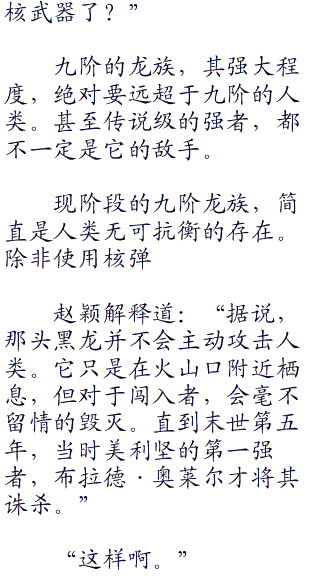 核武器了？”
九阶的龙族，其强大程
度，绝对要远超于九阶的人
类。甚至传说级的强者，都
不一定是它的敌手。
现阶段的九阶龙族，简
直是人类无可抗衡的存在。
除非使用核弹
赵颖解释道：“据说，
那头黑龙并不会主动攻击人
类。它只是在火山口附近栖
息，但对于闯入者，会毫不
留情的毁灭。直到末世第五
年，当时美利坚的第一强
者，布拉德·奥莱尔才将其
诛杀。”
“这样啊。”